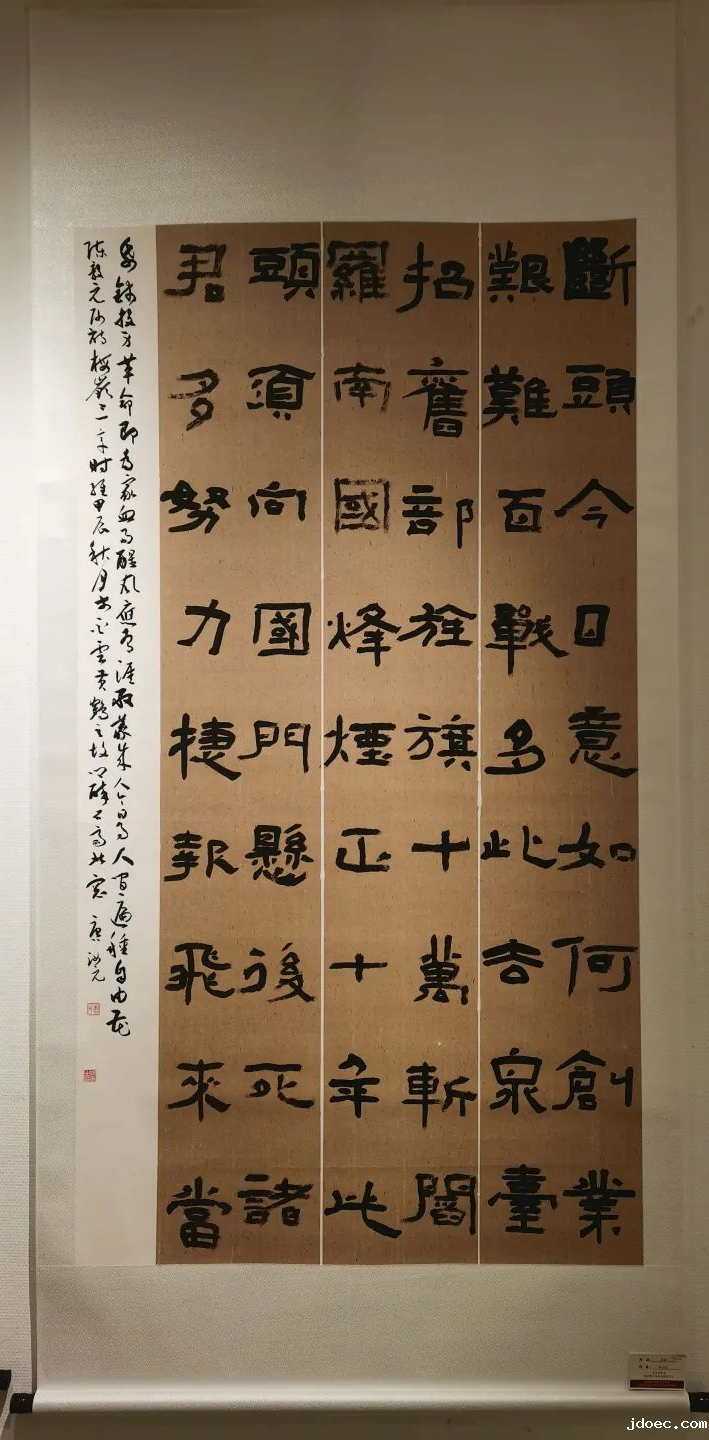 斷頭今日意如何創業
艱難百戰多此去泉臺
招舊部旌旗十萬斬閻
羅南國烽煙正十年此
頭須向國門懸後死諸
君多努力捷報飛來當
紙錢投身革命即為家血雨腥風應有涯取義成人今日事人間遍種自由花
陳毅元帥詩梅嶺三章時維甲辰秋月書
jdoec.com